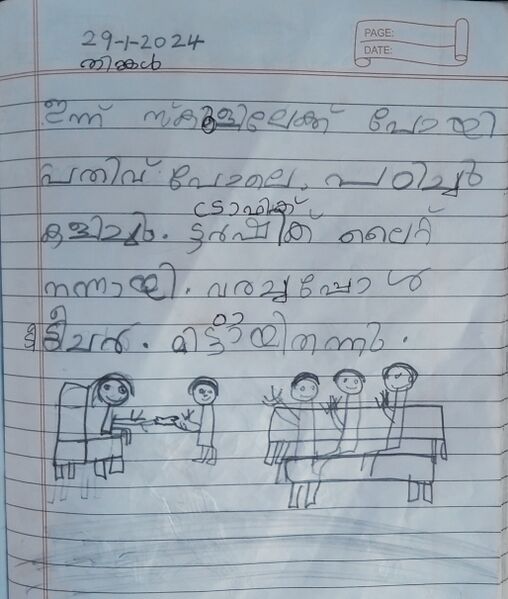 PAGE:
DATE:
29-1-2024
തിങ്കൾ
ഇന്ന് സ്കൂളിലേക്ക് പോയി
പതിവ് പോലെ. പഠിച്ചു
കളിച്ചു. ട്രാഫിക് ലൈറ്റ്
നന്നായി. വരച്ചപ്പോൾ
ടീച്ചർ. മിട്ടായി തന്നു.